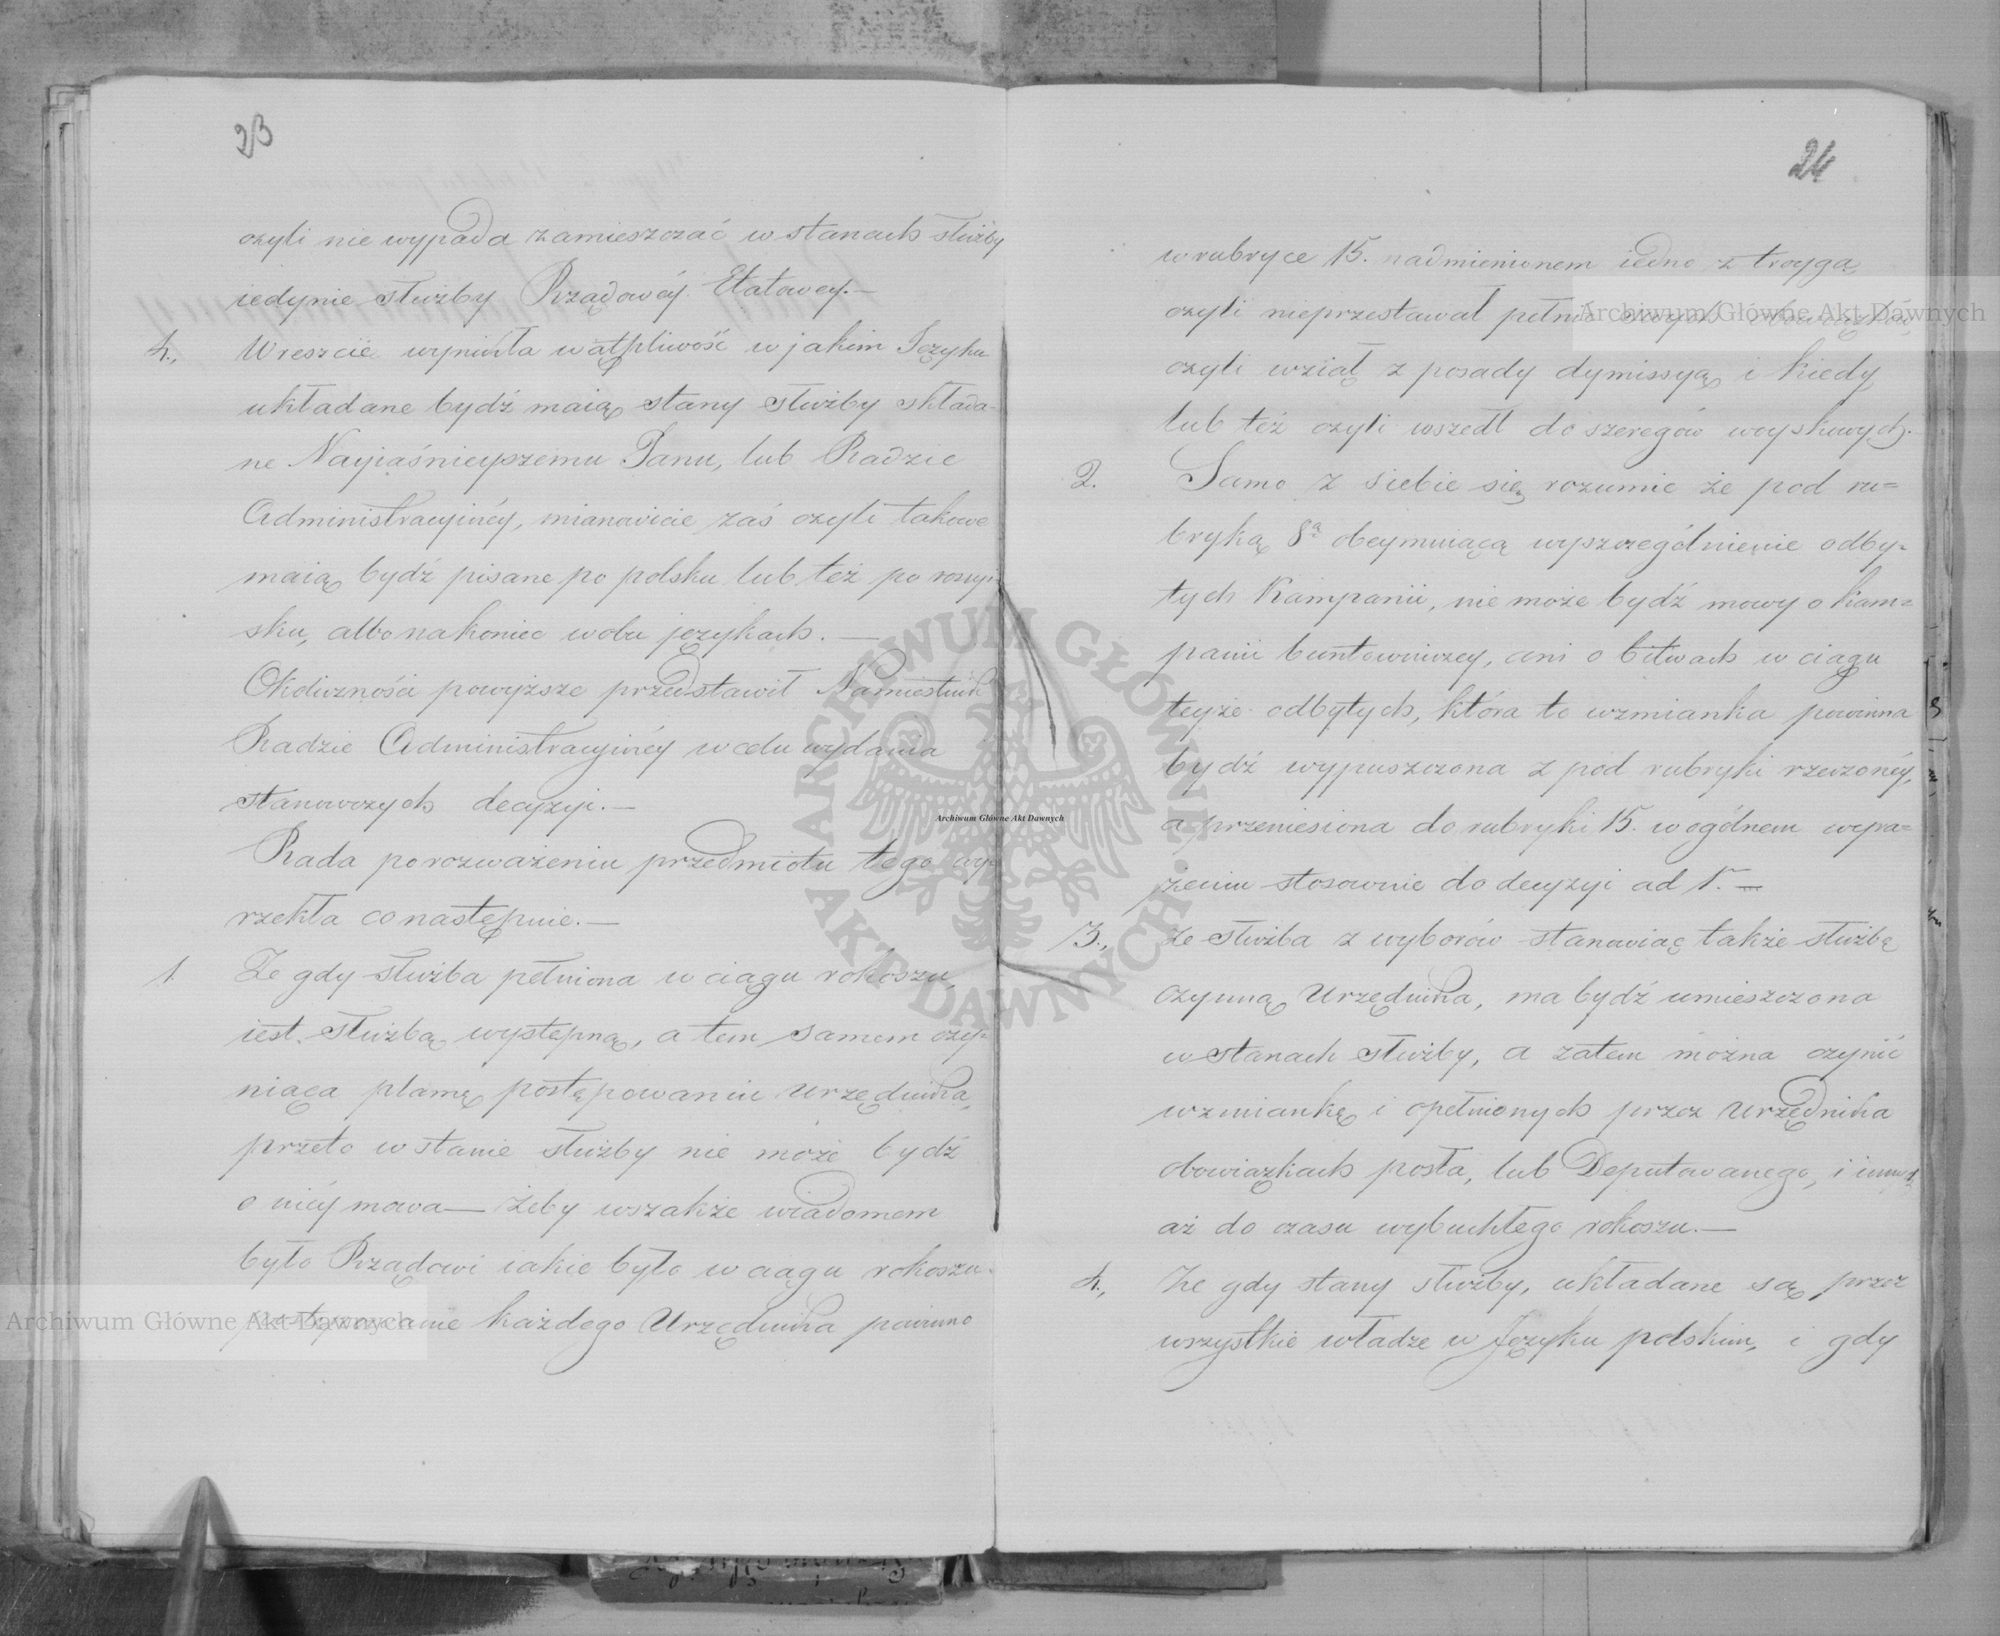 23
czyli nie wypada zamieszczać w stanach służby
iedynie służby Rządowéy Etatowey.—
4., Wreszcie wynikła wątpliwość w jakim Języku
układane bydź maią stany służby składa-
ne Nayiaśnieyszemu Panu, lub Radzie
Administracyinéy, mianowicie zaś czyli takowe
maią bydź pisane po polsku lub też po rossyi-
sku, albo nakoniec w obu językach.—
Okoliczności powyższe przedstawił Namiestnik
Radzie Administracyinéy w celu wydania
stanowczych decyzyi.—
Rada po rozważeniu przedmiotu tego wy-
rzekła co następnie.—
1. Że gdy służba pełniona w ciągu rokoszu,
iest służbą występną, a tem samem czy-
niąca plamę postępowaniu Urzędnika,
przeto w stanie służby nie może bydź
o niéy mowa— żeby wszakże wiadomem
było Rządowi iakie było w ciągu rokoszu
postępowanie każdego Urzędnika powinno
24
w rubryce 15. nadmienionem iedno z troyga,
czyli nieprzestawał pełnić swych obowiązków,
czyli wziął z posady dymissyą i kiedy,
lub też czyli wszedł do szeregów woyskowych.
2. Samo z siebie się rozumie że pod ru=
bryką 8ą obeymuiącą wyszczególnienie odby=
tych Kampanii, nie może bydź mowy o kam=
panii buntowniczey, ani o bitwach w ciągu
teyże odbytych, która to wzmianka powinna
bydź wypuszczona z pod rubryki rzeczonéy,
a przeniesiona do rubryki 15. w ogólnem wyra=
żeniu stosownie do decyzyi ad 1.—
3., Że służba z wyborów stanowiąc także służbę
czynną Urzędnika, ma bydź umieszczona
w stanach służby, a zatem można czynić
wzmiankę i o pełnionych przez Urzędnika
obowiązkach posła, lub Deputowanego, i innych
aż do czasu wybuchłego rokoszu.—
4., Że gdy stany służby, układane są przez
wszystkie władze w Języku polskim, i gdy
Archiwum Główne Akt Dawnych
Archiwum Główne Akt Dawnych
Archiwum Główne Akt Dawnych
ARCHIWUM GŁÓWNE AKT DAWNYCH